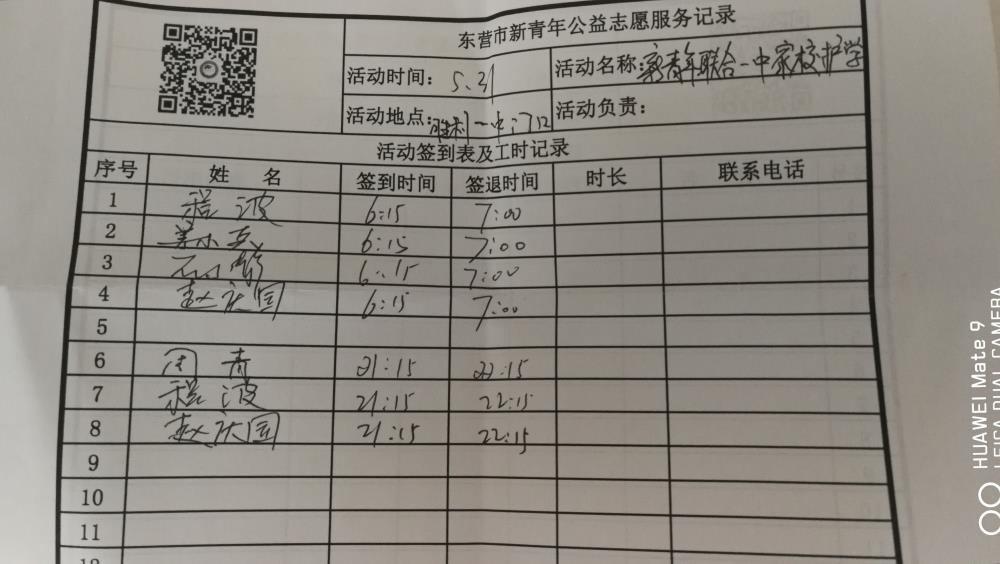 东营市新青年公益志愿服务记录
活动时间: 5.31 活动名称: 新青年联合一中家校护学
活动地点: 胜利一中门口 活动负责:
活动签到表及工时记录
序号 姓 名 签到时间 签退时间 时长 联系电话
1 程波 6:15 7:00
2 6:15 7:00
3 6:15 7:00
4 赵庆国 6:15 7:00
5
6 周青 21:15 22:15
7 程波 21:15 22:15
8 赵庆国 21:15 22:15
9
10
11
12
HUAWEI Mate 9
LEICA DUAL CAMERA